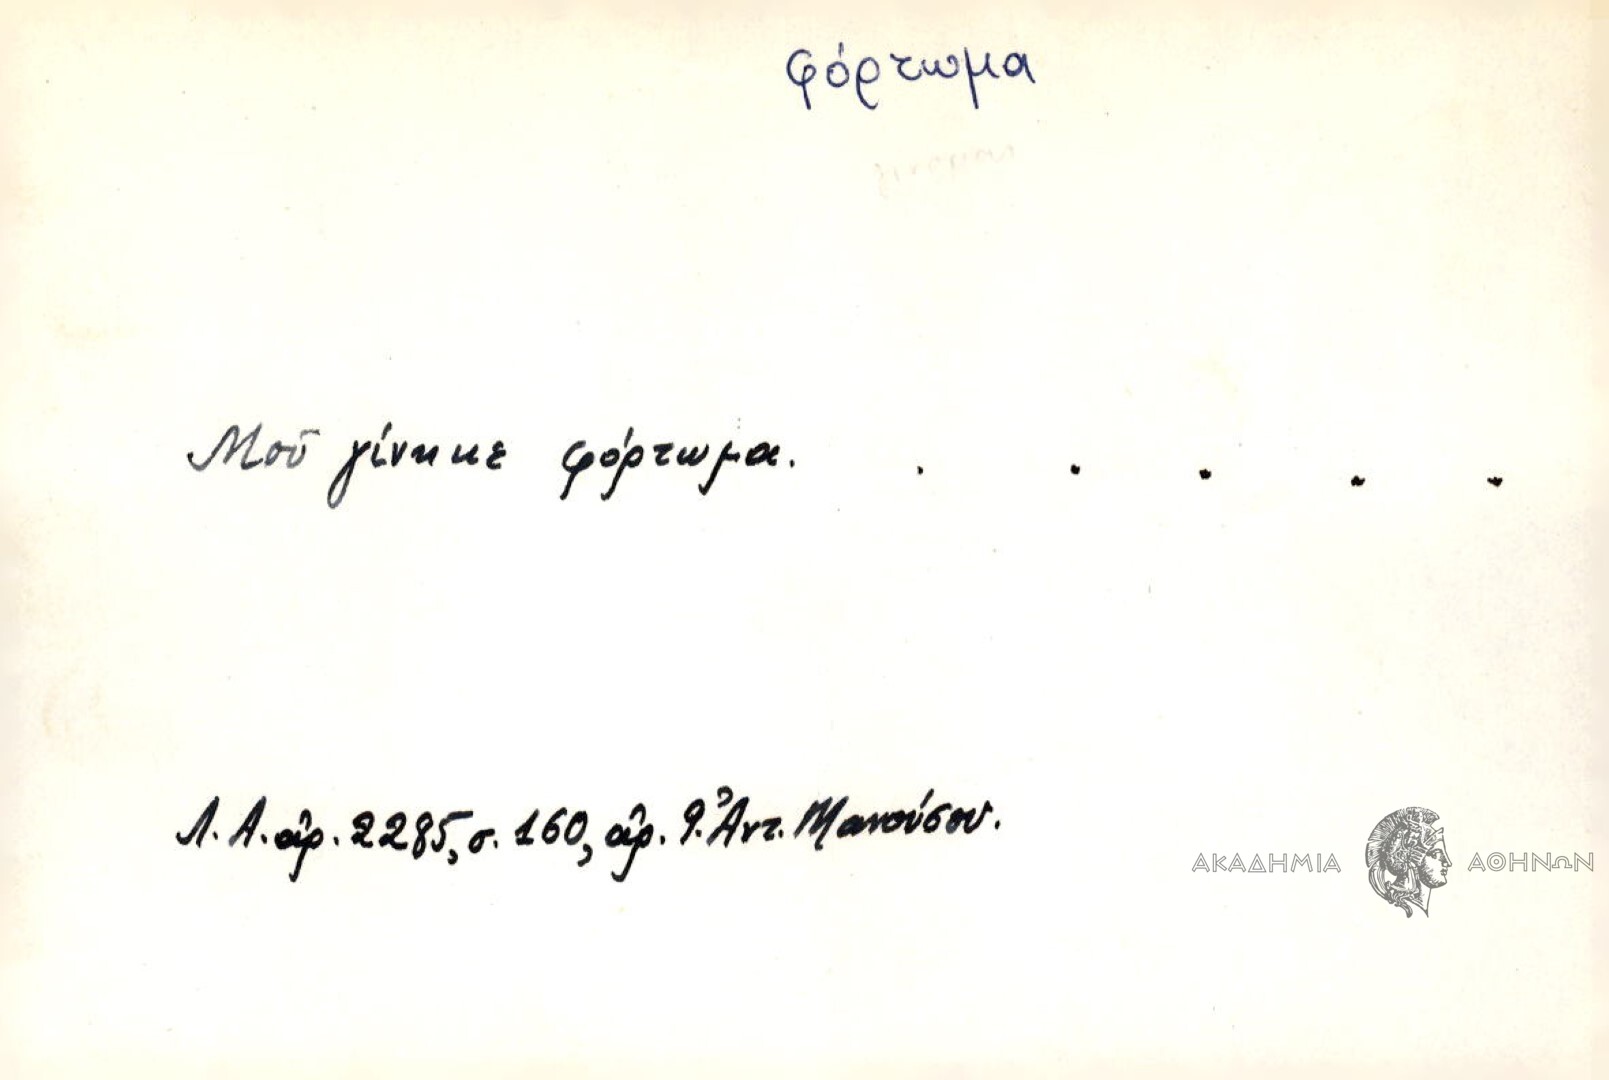 φόρτωμα
Μοῦ γίνηκε φόρτωμα. . . . . .
Λ. Α. ἀρ. 2285, σ. 160, ἀρ. 9. Ἀντ. Μανούσου.
ΑΚΑΔΗΜΙΑ ΑΘΗΝΩΝ